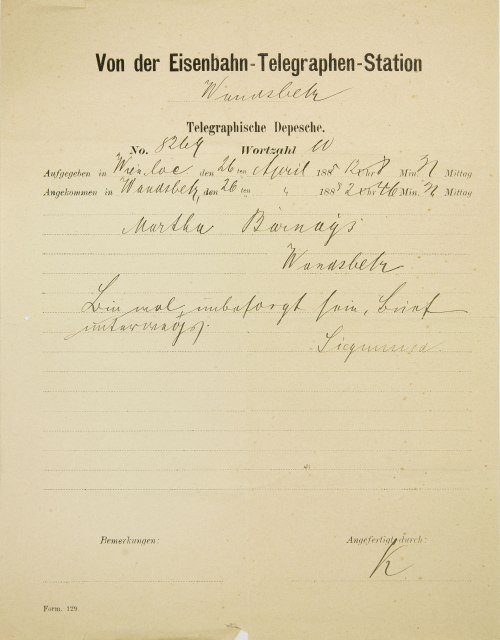 Von der Eisenbahn-Telegraphen-Station
Wandsbek
Telegraphische Depesche.
No. 8264 Wortzahl 10
Aufgegeben in Wien loc den 26 ten April 188 Uhr 8 Min. N Mittag
Angekommen in Wandsbek, den 26 ten " 188 2 Uhr 46 Min. N Mittag
Martha Bärnays
Wandsbek
Bin wol, unbesorgt sein, Brief
unterwegs.
Siegmund
Bemerkungen: Angefertigt durch:
K
Form. 129.